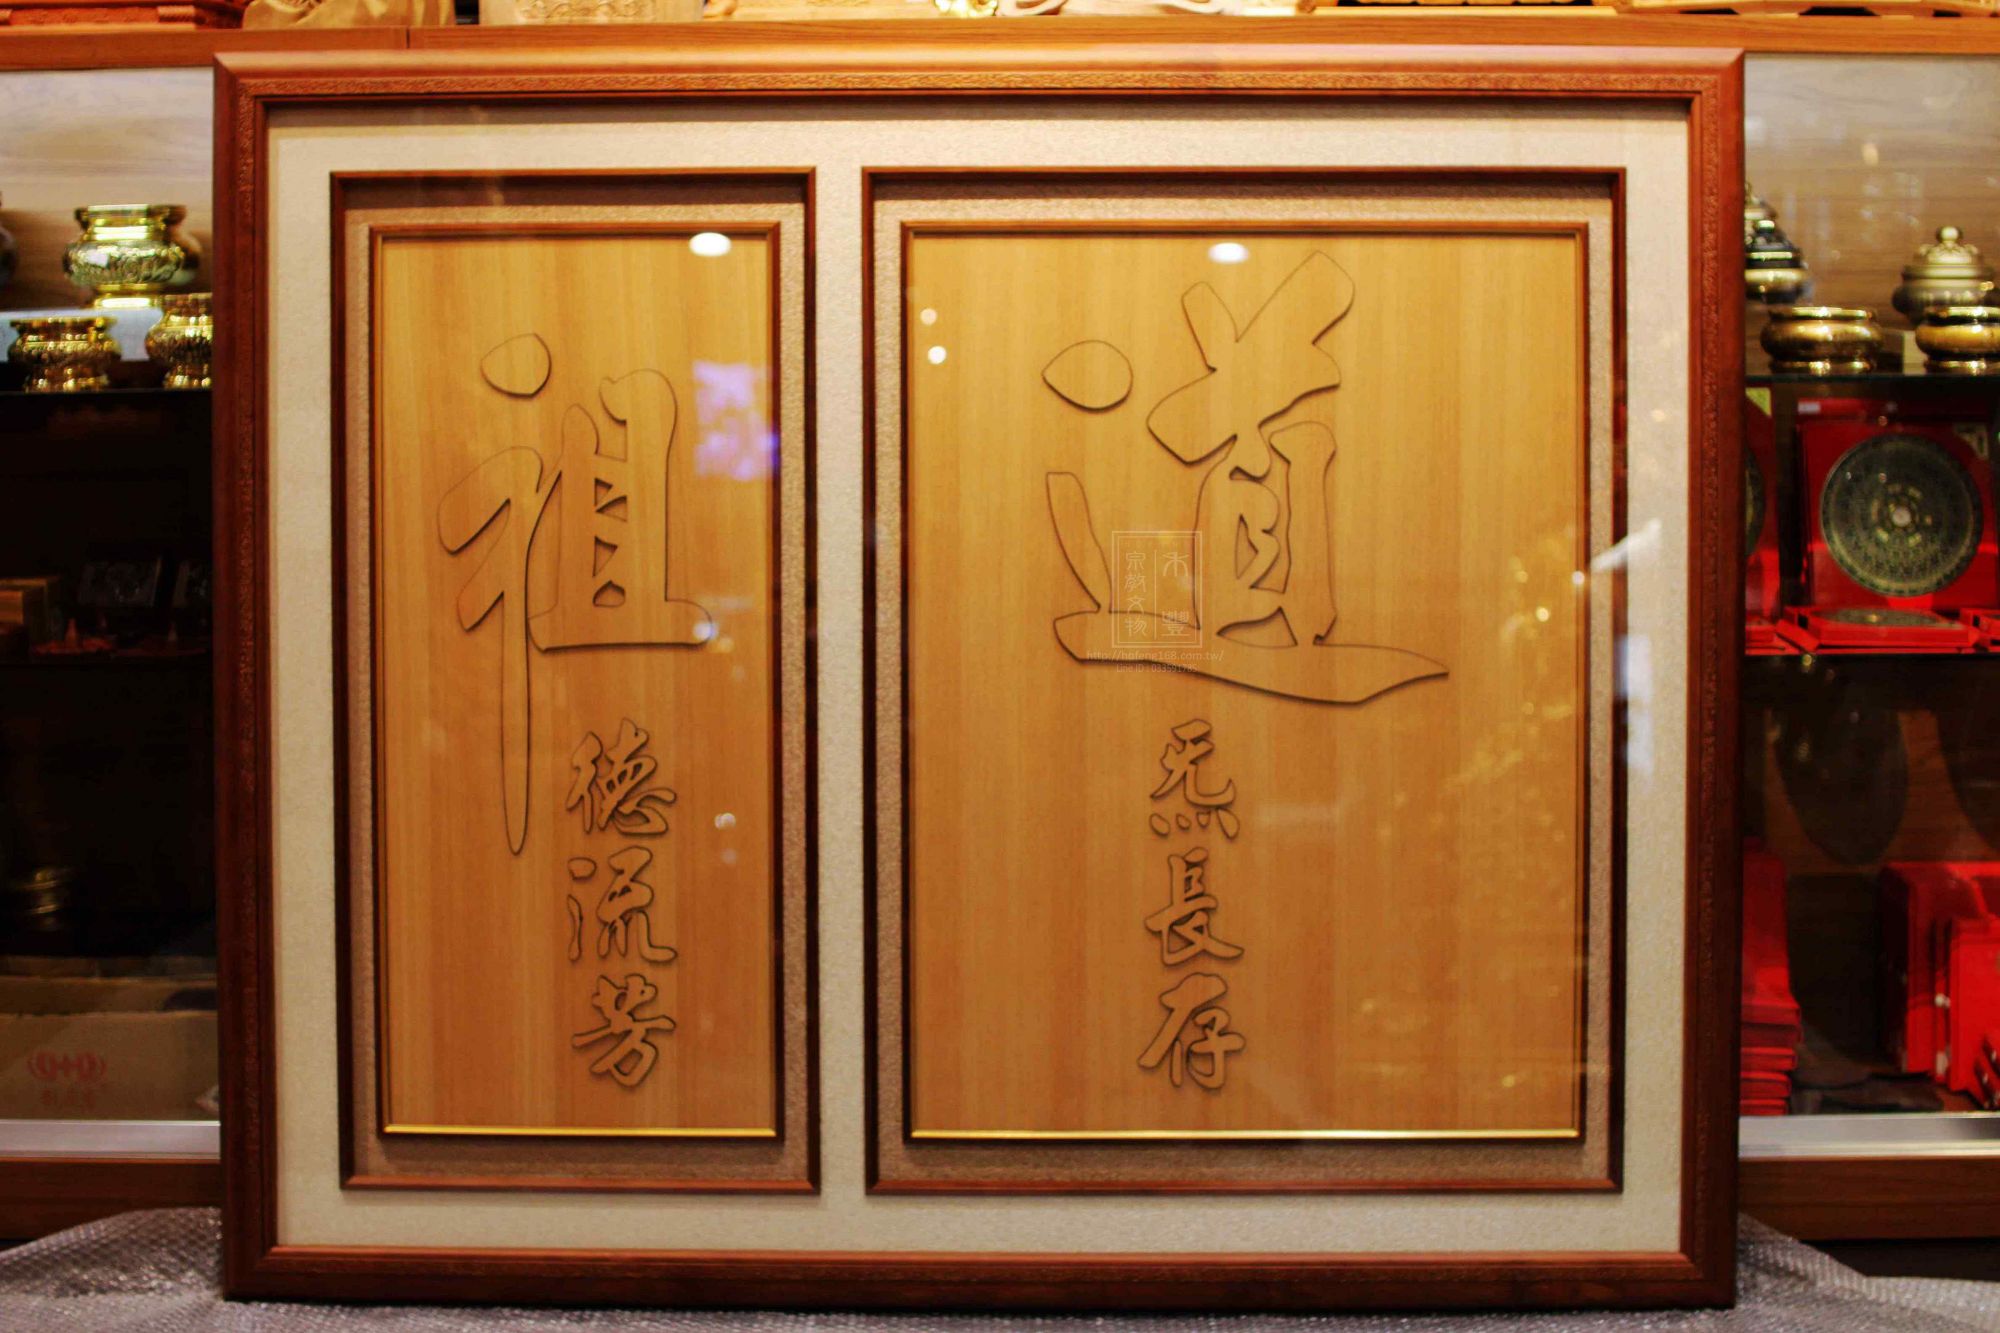 道
炁長存
祖
德流芳
禾豐
宗教文物
http://hofeng168.com.tw/